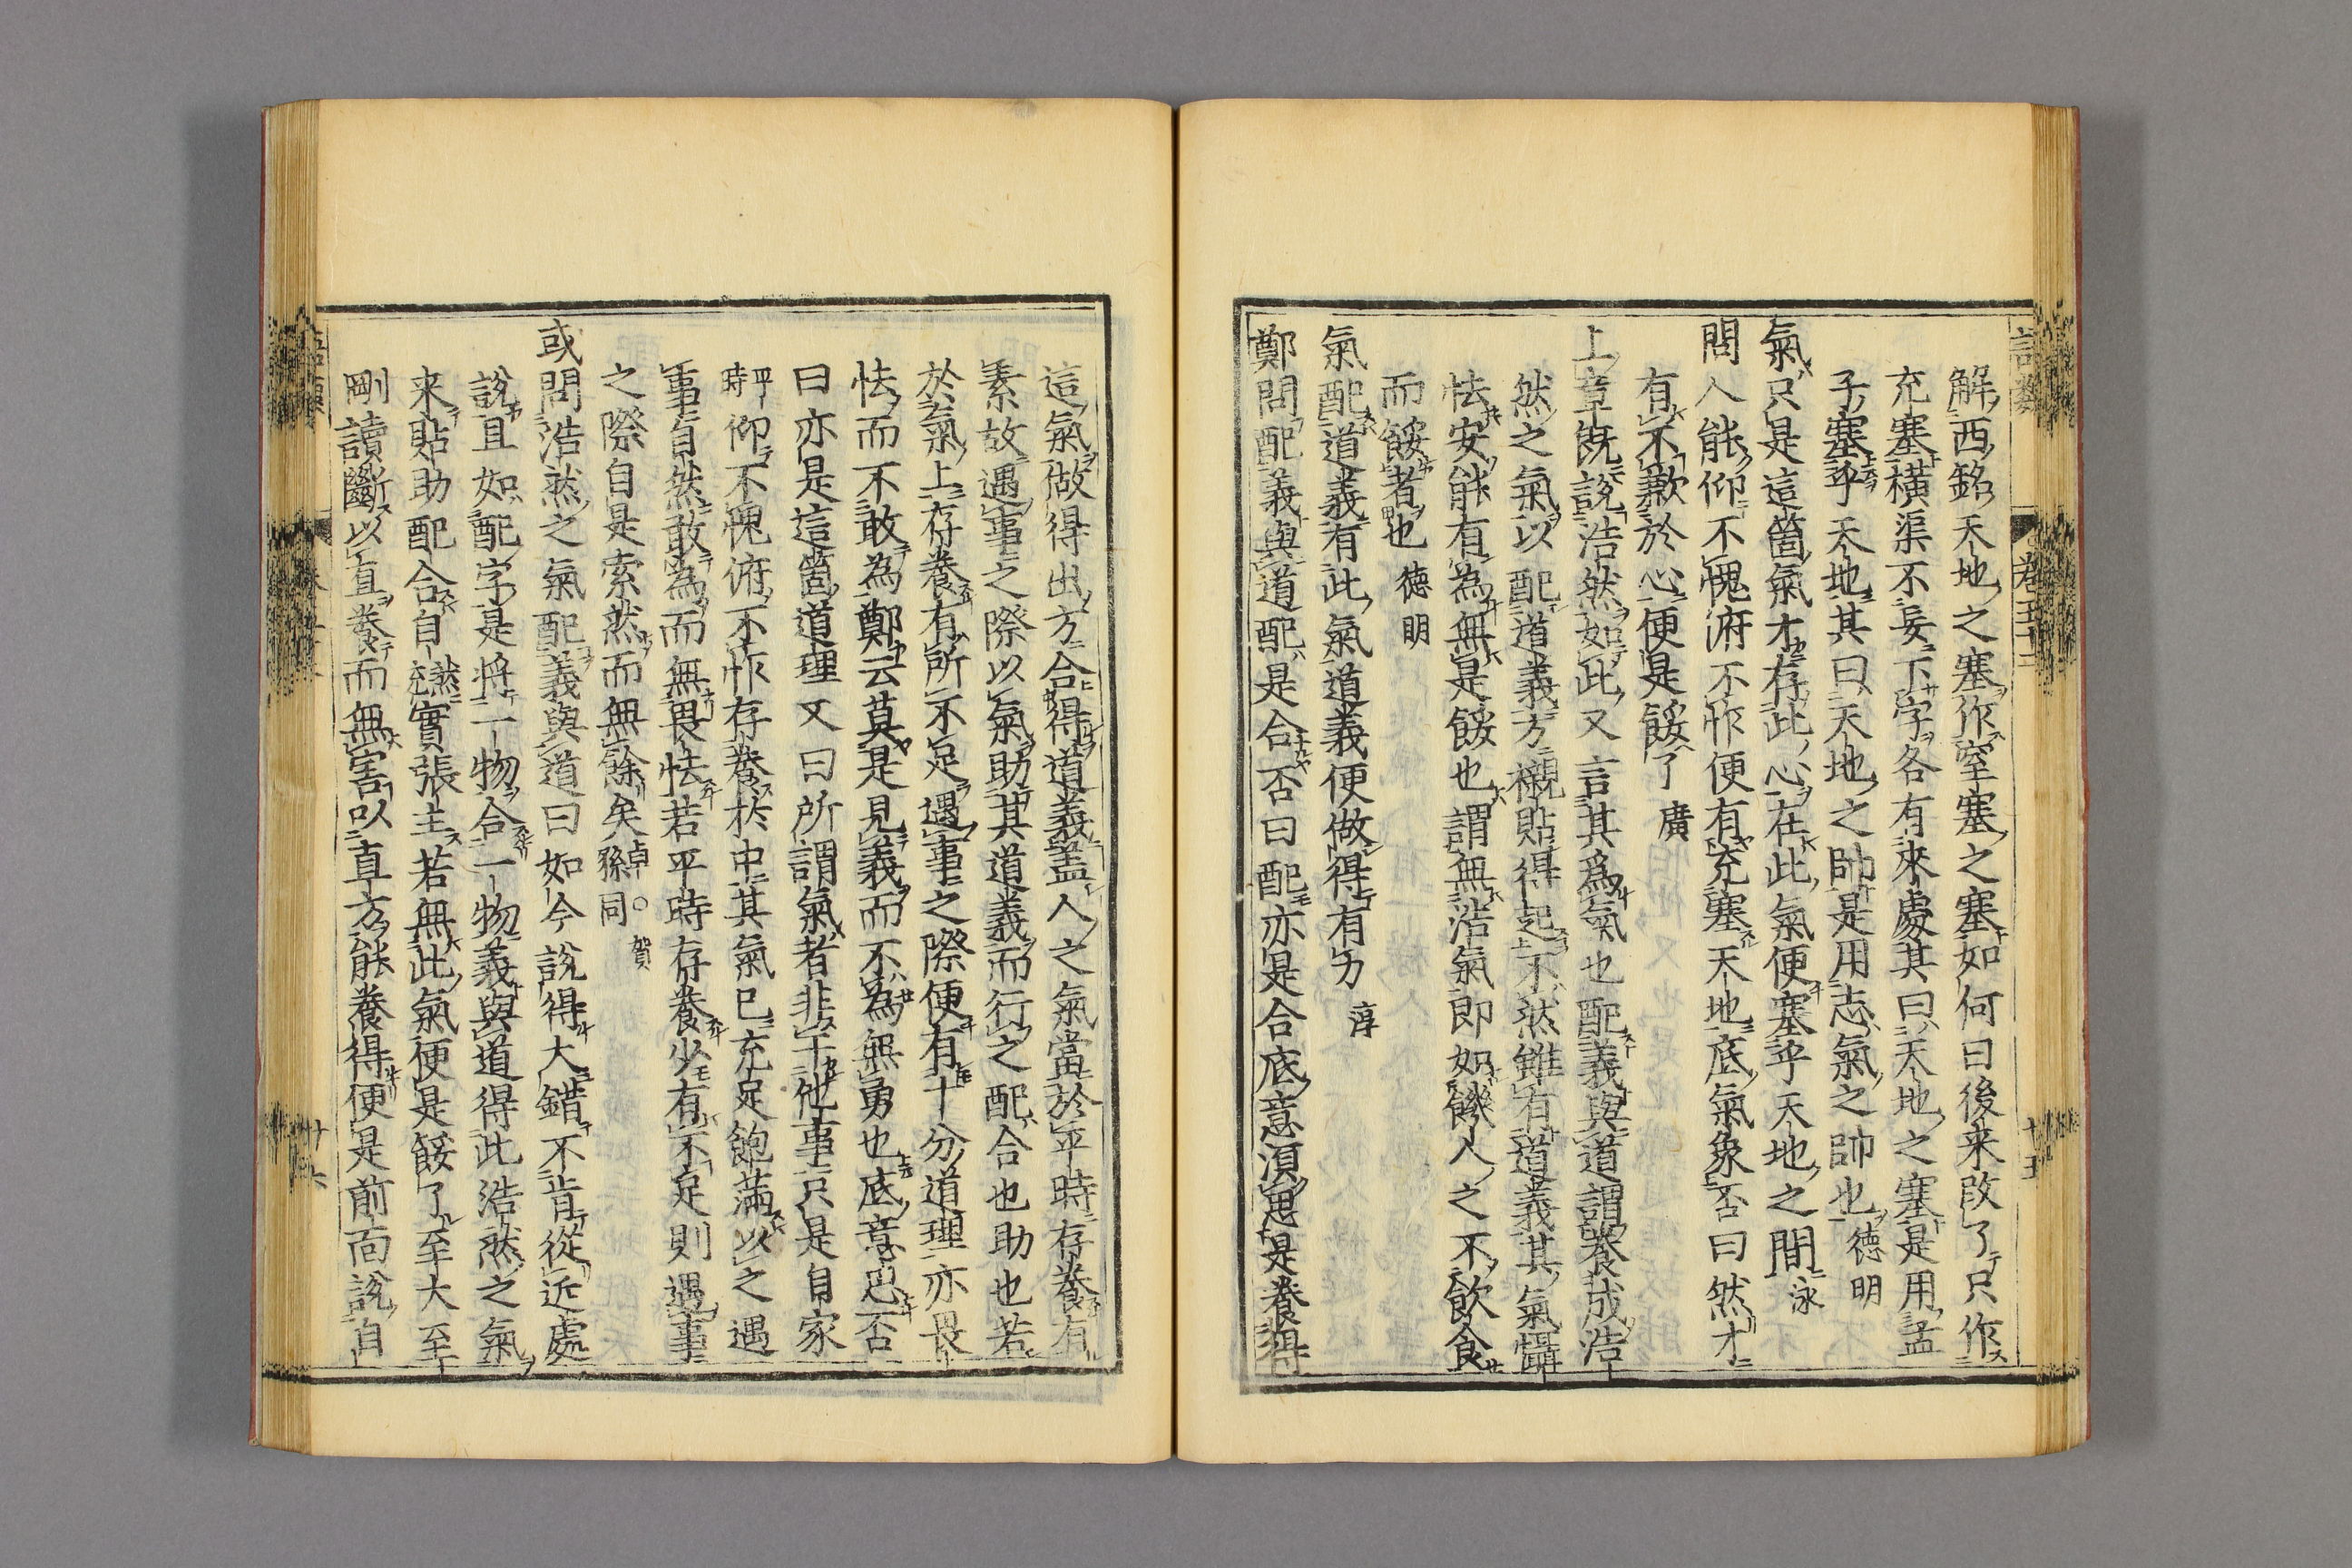 解西銘天地之塞作窒塞之塞如何曰後来改了只作
充塞橫渠不妄下字各有來處其曰天地之塞是用孟
子塞乎天地其曰天地之帥是用志氣之帥也德明
氣只是這箇氣才存此心在此氣便塞乎天地之間泳
問人能仰不愧俯不怍便有充塞天地底氣象否曰然才
有不歉於心便是餒了廣
上章既說浩然如此又言其爲氣也配義與道謂養成浩
然之氣以配道義方襯貼得起不然雖有道義其氣懾
怯安能有為無是餒也謂無浩氣即如饑人之不飲食
而餒者也德明
氣配道義有此氣道義便做得有力淳
鄭問配義與道配是合否曰配亦是合底意須思是養得
語類
卷五十二
廿五
這氣做得出方合得道義蓋人之氣當於平時存養有
素故遇事之際以氣助其道義而行之配合也助也若
於氣上存養有所不足遇事之際便有十分道理亦畏
怯而不敢為鄭云莫是見義而不為無勇也底意思否
曰亦是這箇道理又曰所謂氣者非干他事只是自家
平時仰不愧俯不怍存養於中其氣已充足飽滿以之遇
事自然敢為而無畏怯若平時存養少有不足則遇事
之際自是索然而無餘矣卓○賀孫同
或問浩然之氣配義與道曰如今說得大錯不肯從近處
說且如配字是將一物合一物義與道得此浩然之氣
来貼助配合自然充實張主若無此氣便是餒了至大至
剛讀斷以直養而無害以直方能養得便是前面說自
語類
廿六